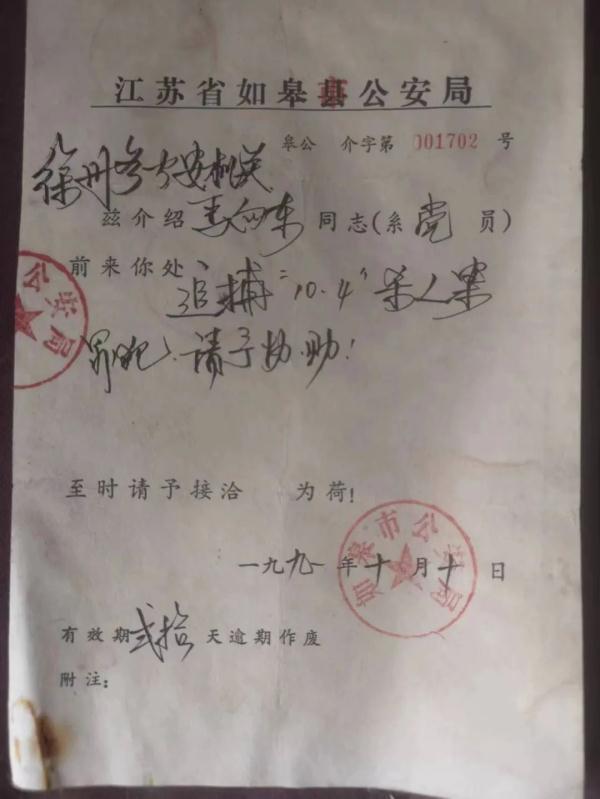 江苏省如皋县公安局
皋公 介字第 001702 号
徐州各公安机关
兹介绍 同志(系党员)
前来你处、
追捕"10.4"杀人案
罪犯、请予协助!
至时请予接洽 为荷!
一九九一年十月十日
有效期贰拾天逾期作废
附注:
如皋市公安局
公安局